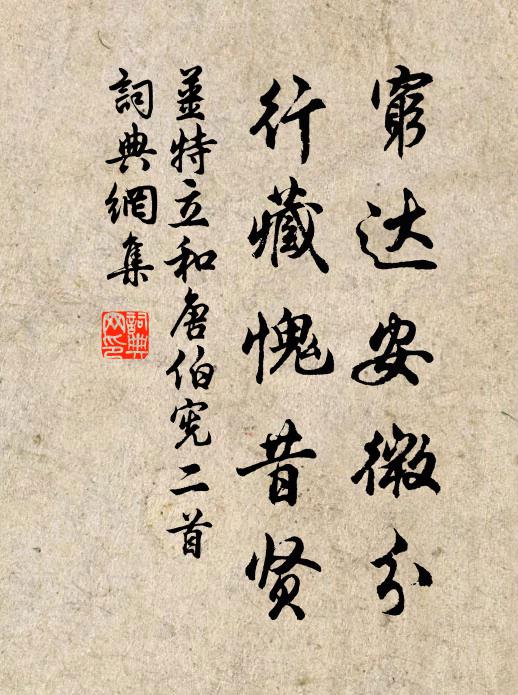 窮达安微分
行藏愧昔贤
姜特立和唐伯宪二首
詞典網集
詞典网印